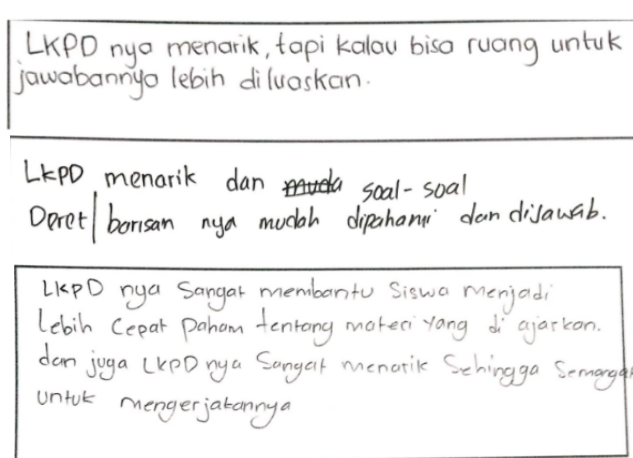 LKPD nya menarik, tapi kalau bisa ruang untuk
jawabannya lebih diluaskan.
LKPD menarik dan muda soal-soal
Deret/barisan nya mudah dipahami dan dijawab.
LKPD nya Sangat membantu Siswa menjadi
lebih cepat paham tentang materi yang di ajarkan.
dan juga LKPD nya Sangat menarik Sehingga Semangat
untuk mengerjakannya